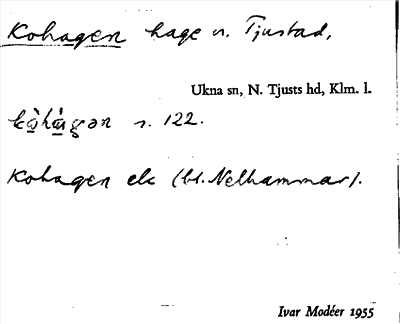 Kohagen hage n. Tjustad,
Ukna sn, N. Tjusts hd, Klm. l.
s. 122.
Kohagen ek (bl. Nelhammar).
Ivar Modéer 1955